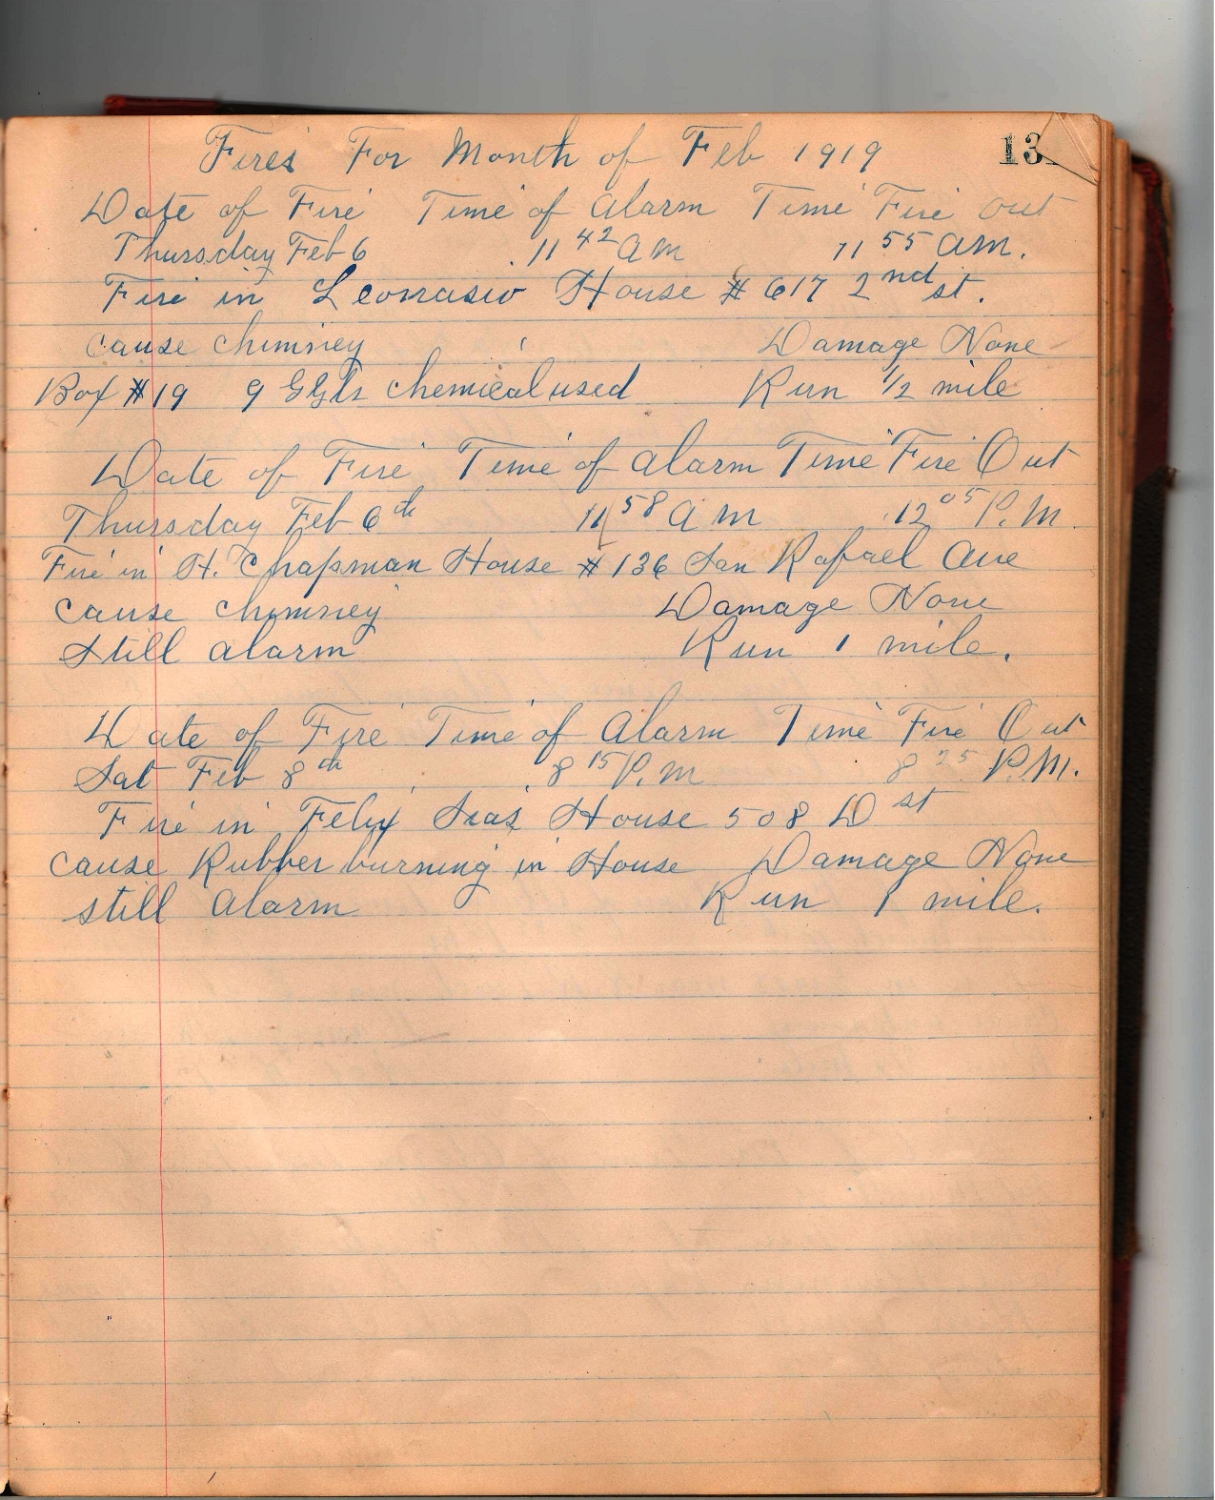 Fires For Month of Feb 1919 13
Date of Fire Time of Alarm Time Fire out
Thursday Feb 6 11 42 a m 11 55 am.
Fire in House # 617 2nd st.
cause chimney Damage None
Box #19 9 Gls chemical used Run 1/2 mile
Date of Fire Time of Alarm Time Fire Out
Thursday Feb 6th 11 58 a m 12 05 P.M.
Fire in H. Chapman House # 136 San Rafael Ave
cause chimney Damage None
still alarm Run 1 mile.
Date of Fire Time of Alarm Time Fire Out
Sat Feb 8th 8 15 P.m 8 25 P.M.
Fire in Felix House 508 D st
cause Rubber burning in House Damage None
still Alarm Run 1 mile.